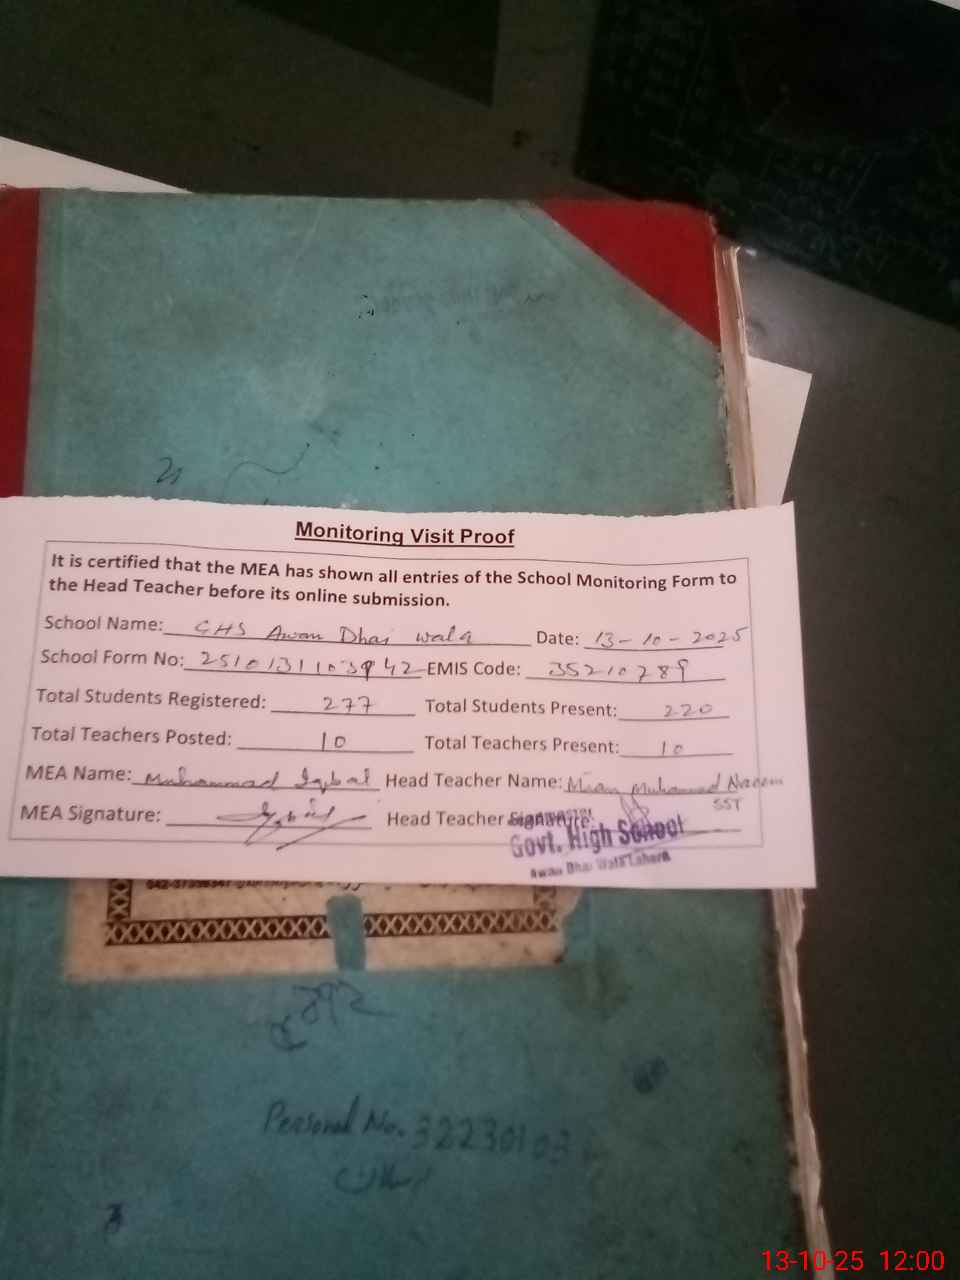 Monitoring Visit Proof
It is certified that the MEA has shown all entries of the School Monitoring Form to
the Head Teacher before its online submission.
School Name: GHS Awan Dhai wala Date: 13-10-2025
School Form No: EMIS Code: 35210289
Total Students Registered: 277 Total Students Present: 220
Total Teachers Posted: 10 Total Teachers Present: 10
MEA Name: Muhammad Iqbal Head Teacher Name: Mian Muhammad Naeem
SST
MEA Signature: Head Teacher Signature:
Govt. High School
Awan Dhai Wala Lahore
Personal No. 32230103
13-10-25 12:00